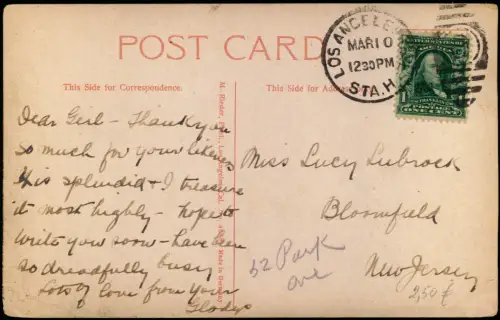 POST CARD
This Side for Correspondence.
This Side for Address
LOS ANGELES
MAR 10
1230PM
STA. H
1
ONE CENT
M. Rieder, Publ., Los Angeles, Cal.
Made in Germany
Dear Girl - Thank you
so much for your likeness
this splendid & I treasure
it most highly - hope to
write you soon - have been
so dreadfully busy
Lots of love from your
Gladys
Miss Lucy Lubrock
Bloomfield
New Jersey
52 Park
ave
2,50